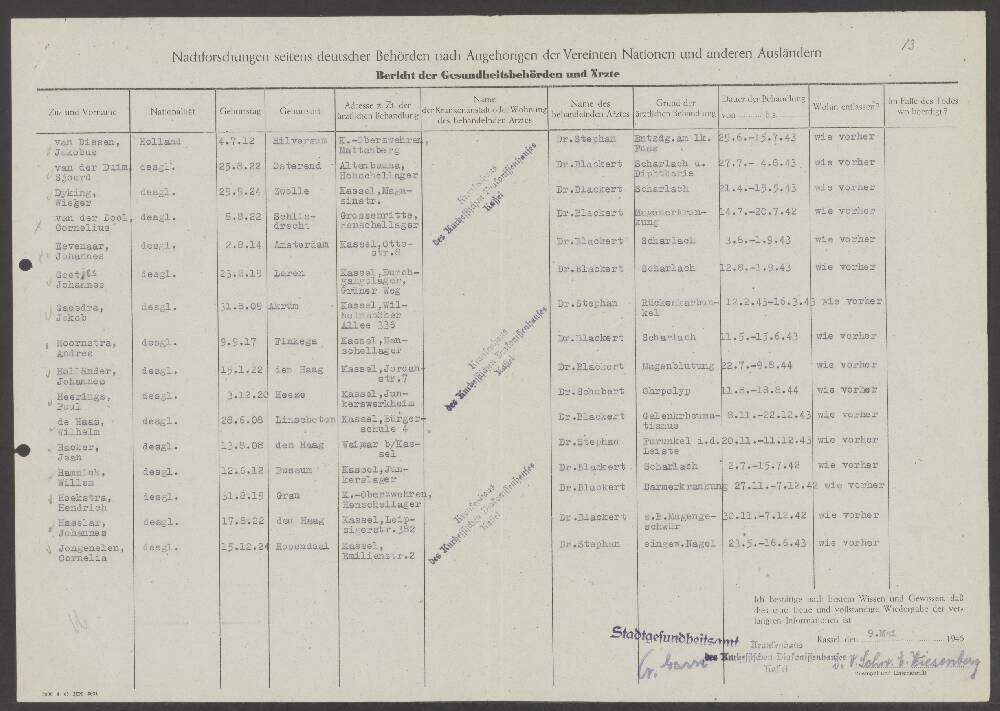 13
Nachforschungen seitens deutscher Behörden nach Angehörigen der Vereinten Nationen und anderen Ausländern
Bericht der Gesundheitsbehörden und Ärzte
Zu- und Vorname | Nationalität | Geburtstag | Geburtsort | Adresse z. Zt. der ärztlichen Behandlung | Name der Krankenanstalt oder Wohnung des behandelnden Arztes | Name des behandelnden Arztes | Grund der ärztlichen Behandlung | Dauer der Behandlung von ... bis ... | Wohin entlassen? | Im Falle des Todes wo beerdigt?
van Dissen, Jakobus | Holland | 4.7.12 | Hilversum | K.-Oberzwehren, Mattenberg | Dr.Stephan | Entzdg.am lk. Fuss | 25.6.-15.7.43 | wie vorher
van der Duim, Sjoerd | desgl. | 25.8.22 | Osterend | Altenbauna, Henschellager | Dr.Blackert | Scharlach u. Diphtherie | 27.7.- 4.8.43 | wie vorher
Dyking, Wieger | desgl. | 25.9.24 | Zwolle | Kassel, Magazinstr. | Dr.Blackert | Scharlach | 21.4.-15.5.43 | wie vorher
van der Dool, Cornelius | desgl. | 5.8.22 | Grossenritte, Henschellager | Dr.Blackert | Magenerkrankung | 14.7.-20.7.42 | wie vorher
Johannes | desgl. | 2.8.14 | Amsterdam | Kassel,Otto-str.8 | Dr.Blackert | Scharlach | 3.6.-1.9.43 | wie vorher
Johannes | desgl. | 23.2.19 | Laren | Kassel,Durchgangslager, Grüner Weg | Dr.Blackert | Scharlach | 12.8.-1.9.43 | wie vorher
Jakob | desgl. | 31.8.09 | Akrum | Kassel,Wilhelmshöher Allee 335 | Dr.Stephan | Rückenkarbunkel | 12.2.43-16.3.43 | wie vorher
Hoornstra, Andres | desgl. | 9.9.17 | Finkega | Kassel,Henschellager | Dr.Blackert | Scharlach | 11.5.-15.6.43 | wie vorher
Holländer, Johannes | desgl. | 15.1.22 | den Haag | Kassel,Jordanstr.7 | Dr.Blackert | Magenblutung | 22.7.-9.8.44 | wie vorher
Heerings, Paul | desgl. | 3.12.20 | Heeze | Kassel,Junkerswerkheim | Dr.Schubert | Ohrpolyp | 11.8.-18.8.44 | wie vorher
de Haas, Wilhelm | desgl. | 28.6.08 | Linschoten | Kassel,Bürgerschule 4 | Dr.Blackert | Gelenkrheumatismus | 8.11.-22.12.43 | wie vorher
Hacker, Jean | desgl. | 13.8.08 | den Haag | Weimar b/Kassel | Dr.Stephan | Furunkel i.d. Leiste | 20.11.-11.12.43 | wie vorher
Hammink, Willem | desgl. | 12.6.12 | Bussum | Kassel,Junkerslager | Dr.Blackert | Scharlach | 2.7.-15.7.42 | wie vorher
Hoekstra, Hendrich | desgl. | 31.8.19 | Grau | K.-Oberzwehren, Henschellager | Dr.Blackert | Darmerkrankung | 27.11.-7.12.42 | wie vorher
Haselar, Johannes | desgl. | 17.5.22 | den Haag | Kassel,Leipzigerstr.382 | Dr.Blackert | s.B.Magengeschwür | 30.11.-7.12.42 | wie vorher
Jongenelen, Cornelia | desgl. | 15.12.24 | Rosendaal | Kassel, Emilienstr.2 | Dr.Stephan | eingew.Nagel | 23.5.-16.6.43 | wie vorher
Krankenhaus
des Kurhessischen Diakonissenhauses
Kassel
Krankenhaus
des Kurhessischen Diakonissenhauses
Kassel
Krankenhaus
des Kurhessischen Diakonissenhauses
Kassel
16
Ich bestätige nach bestem Wissen und Gewissen, daß
dies eine treue und vollständige Wiedergabe der ver-
langten Informationen ist
Stadtgesundheitsamt
Kassel, den 9.Mai 1946
Krankenhaus
des Kurhessischen Diakonissenhauses
Kassel
Schw. E. Wiesenberg
(Stempel und Unterschrift)